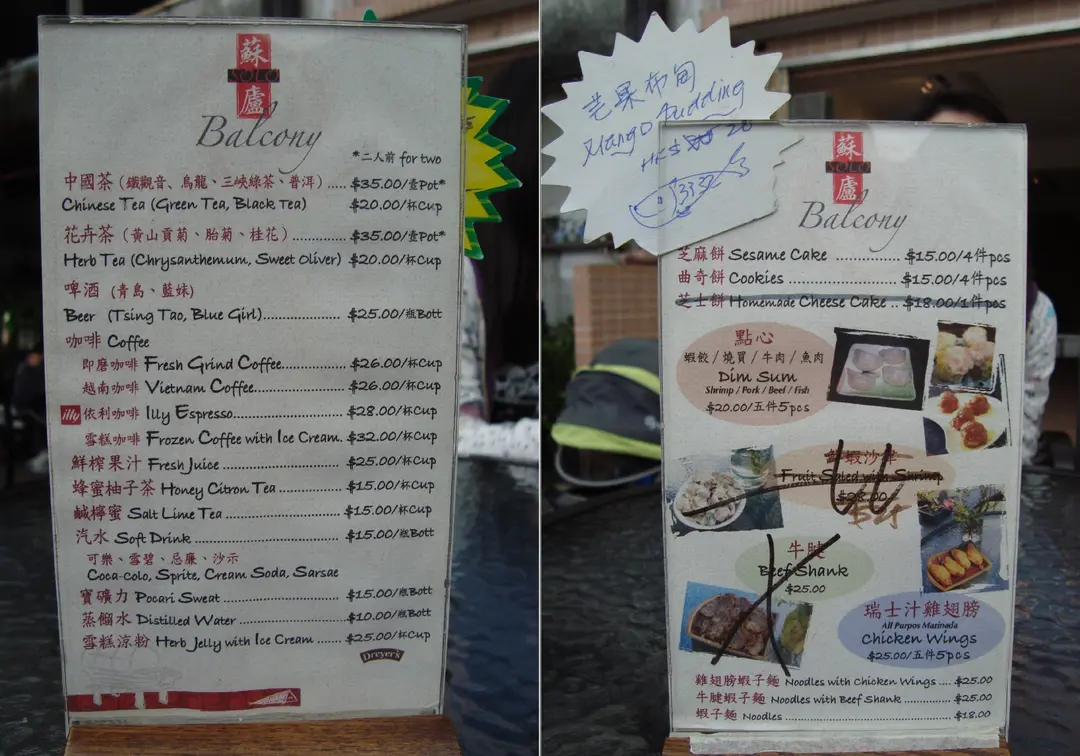 蘇
SOLO
盧
Balcony
*二人前 for two
中國茶 (鐵觀音、烏龍、三峽綠茶、普洱) ..... $35.00/壺Pot*
Chinese Tea (Green Tea, Black Tea) $20.00/杯Cup
花卉茶 (黃山貢菊、胎菊、桂花) .............. $35.00/壺Pot*
Herb Tea (Chrysanthemum, Sweet Oliver) $20.00/杯Cup
啤酒 (青島、藍妹)
Beer (Tsing Tao, Blue Girl)..................... $25.00/瓶Bott
咖啡 Coffee
即磨咖啡 Fresh Grind Coffee............... $26.00/杯Cup
越南咖啡 Vietnam Coffee..................... $26.00/杯Cup
illy 依利咖啡 Illy Espresso......................... $28.00/杯Cup
雪糕咖啡 Frozen Coffee with Ice Cream. $32.00/杯Cup
鮮榨果汁 Fresh Juice ............................. $25.00/杯Cup
蜂蜜柚子茶 Honey Citron Tea ............... $15.00/杯Cup
鹹檸蜜 Salt Lime Tea............................. $15.00/杯Cup
汽水 Soft Drink .................................... $15.00/瓶Bott
可樂、雪碧、忌廉、沙示
Coca-colo, Sprite, Cream Soda, Sarsae
寶礦力 Pocari Sweat ............................. $15.00/瓶Bott
蒸餾水 Distilled Water .......................... $10.00/瓶Bott
雪糕涼粉 Herb Jelly with Ice Cream ..... $25.00/杯Cup
Dreyer's
芒果布甸
Mango Pudding
HK$ 20
蘇
SOLO
盧
Balcony
芝麻餅 Sesame Cake ............... $15.00/4件pcs
曲奇餅 Cookies ......................... $15.00/4件pcs
芝士餅 Homemade Cheese Cake .. $18.00/1件pcs
點心
蝦餃 / 燒買 / 牛肉 / 魚肉
Dim Sum
Shrimp / Pork / Beef / Fish
$20.00/五件5pcs
鮮蝦沙律
Fruit Saled with Surimp
$28.00
牛腱
Beef Shank
$25.00
瑞士汁雞翅膀
All Purpos Marinada
Chicken Wings
$25.00/五件5pcs
雞翅膀蝦子麵 Noodles with Chicken Wings .... $25.00
牛腱蝦子麵 Noodles with Beef Shank ............ $25.00
蝦子麵 Noodles ............................................ $18.00